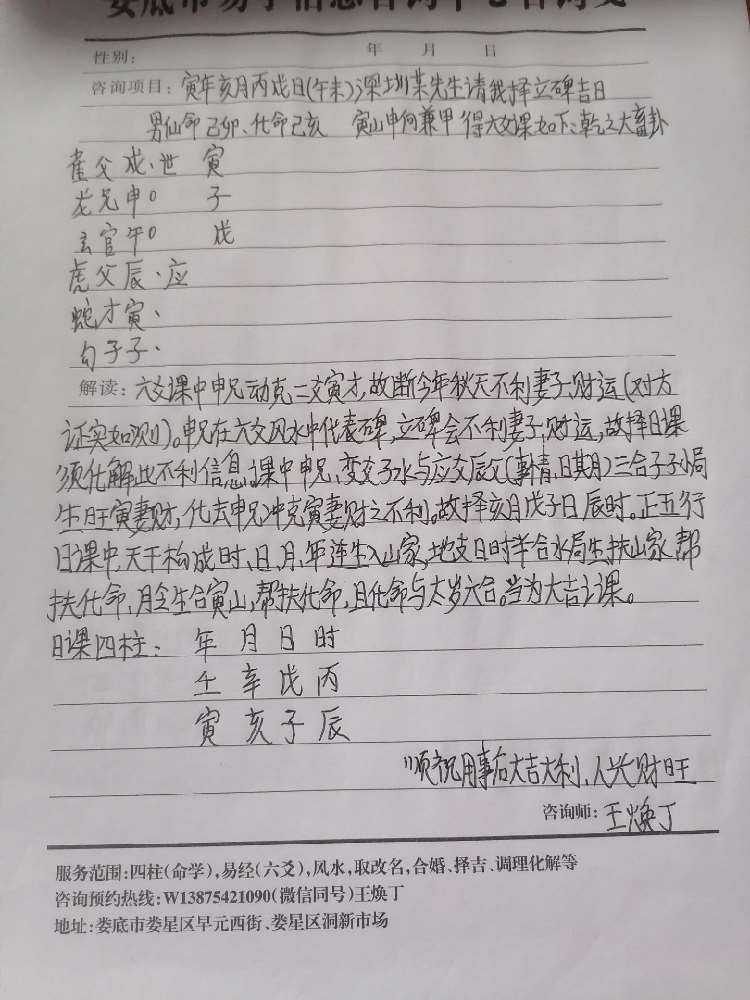 娄底市易学信息咨询中心咨询笺
性别: 年 月 日
咨询项目: 寅年亥月丙戌日(午未)深圳某先生请我择立碑吉日
男仙命己卯、化命己亥 寅山申向兼甲 得六爻课如下:乾之大畜卦
雀父戌、世 寅
龙兄申〇 子
玄官午〇 戌
虎父辰、应
蛇才寅、
勾子子、
解读: 六爻课中申兄动克二爻寅才,故断今年秋天不利妻子、财运(对方
证实如测)。申兄在六爻风水中代表碑,立碑会不利妻子,财运,故择日课
须化解此不利信息,课中申兄,变爻子水与应爻辰父(事情、日期)三合子水局
生旺寅妻财,化去申兄冲克寅妻财之不利。故择亥月戊子日辰时。正五行
日课中,天干构成时、日、月、年连生入山家,地支日时半合水局生扶山家,帮
扶化命,月令生合寅山,帮扶化命,且化命与太岁六合。当为大吉之课。
日课四柱: 年 月 日 时
壬 辛 戊 丙
寅 亥 子 辰
顺祝用事后大吉大利、人兴财旺
咨询师: 王焕丁
服务范围:四柱(命学),易经(六爻),风水,取改名,合婚、择吉、调理化解等
咨询预约热线:W13875421090(微信同号)王焕丁
地址:娄底市娄星区早元西街、娄星区洞新市场